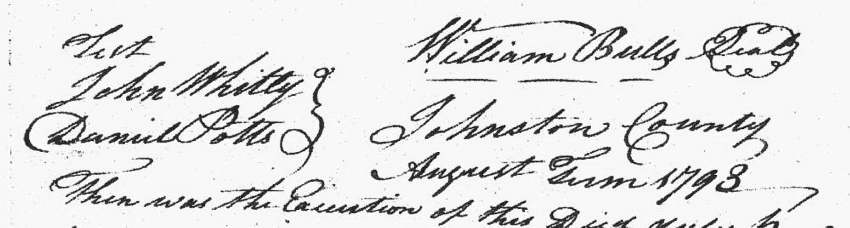 Test
William Bulls Seal
John Whitty
Daniel Potts
Johnston County
August Term 1793
Then was the Execution of this Deed